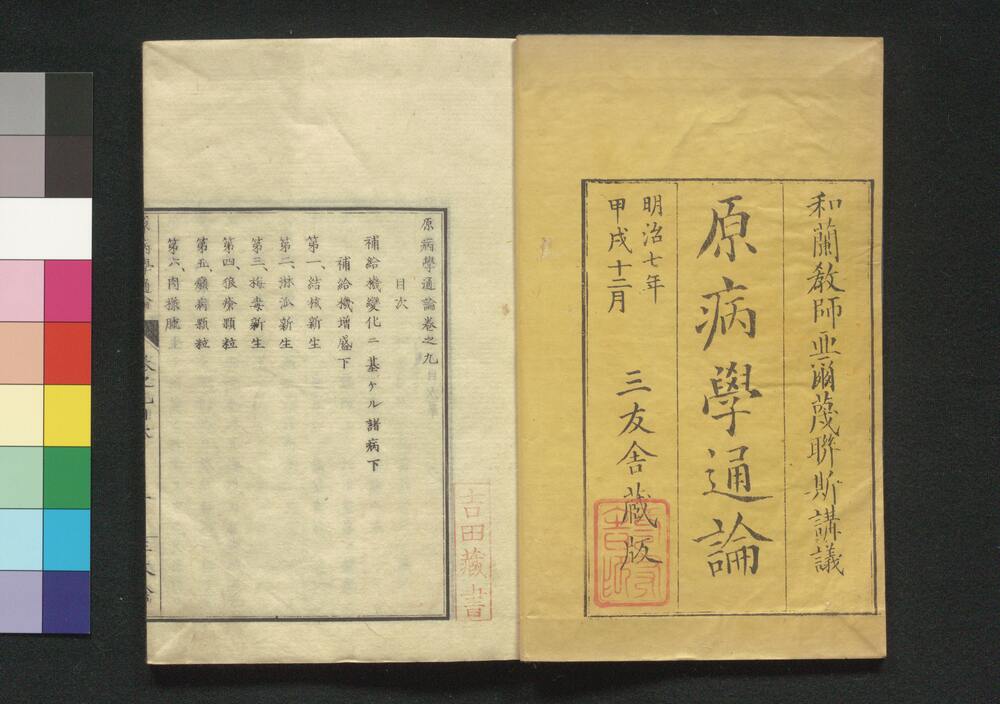 和蘭教師亜爾蔑聯斯講議
原病學通論
明治七年
甲戌十二月
三友舎藏版
原病學通論卷之九
目次
補給機變化ニ基ケル諸病下
補給機增盛下
第一、結核新生
第二、淋巴新生
第三、梅毒新生
第四、狼瘡顆粒
第五、癩病顆粒
第六、肉樣腫
吉田藏書